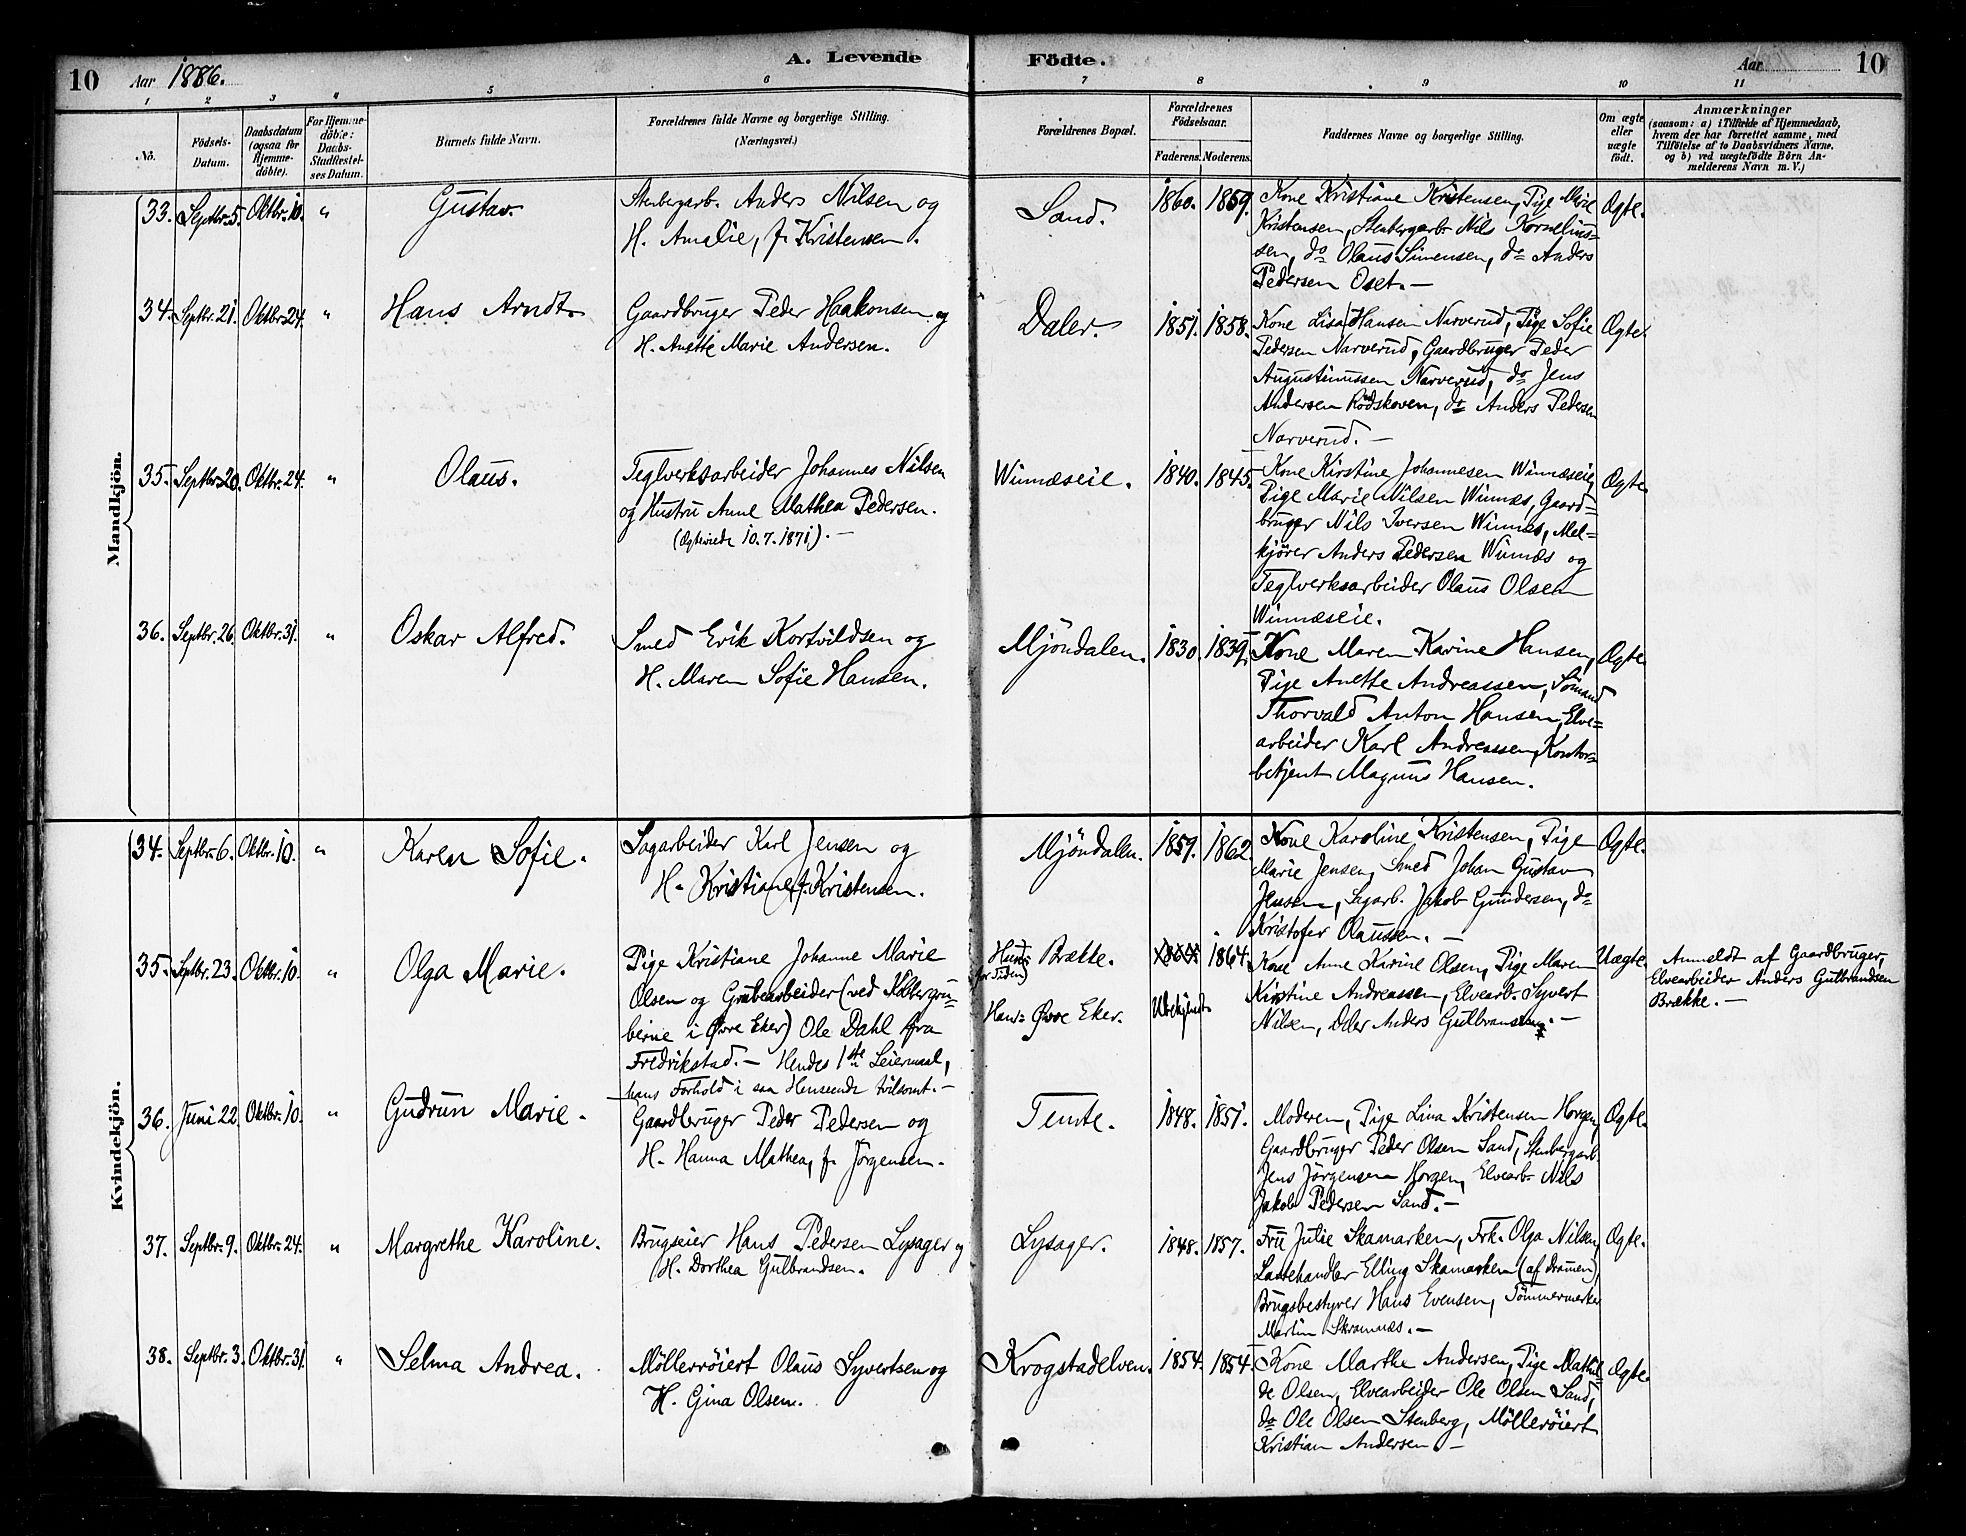 10 Aar 1886. A. Levende Födte. Aar 10
1 2 3 4 5 6 7 8 9 10 11
No.
Födsels-Datum.
Daabsdatum (ogsaa for Hjemme-döbte).
For Hjemme-döbte: Daabs-Stadfæstel-ses Datum.
Barnets fulde Navn.
Forældrenes fulde Navne og borgerlige Stilling.
(Næringsvei.)
Forældrenes Bopæl.
Forældrenes Födselsaar.
Faderens. Moderens.
Faddernes Navne og borgerlige Stilling.
Om ægte eller uægte födt.
Anmærkninger
(saasom: a) i Tilfælde af Hjemmedaab,
hvem der har forrettet samme, med
Tilföielse af to Daabsvidners Navne.
og b) ved uægtefödte Börn An-
melderens Navn m. V.)
Mandkjön.
33. Septbr. 5. Oktbr. 10. " Gustav.
Stenbergarb. Anders Nilsen og
H. Amalie, f. Kristensen.
Sand. 1860. 1859.
Kone Kristiane Kristensen, Pige Marie
Kristensen, Stenbergarb. Nils Kornelius=
sen, do Olaus Simensen, do Anders
Pedersen Oset. —
Ægte.
34. Septbr. 21. Oktbr. 24. " Hans Arndt.
Gaardbruger Peder Haakonsen og
H. Anette Marie Andersen.
Daler. 1851. 1858.
Kone Lisa Hansen Narverud, Pige Sofie
Pedersen Narverud, Gaardbruger Peder
Augustinussen Narverud, do Jens
Andersen Rödskoven, do Anders Pedersen
Narverud. —
Ægte.
35. Septbr. 20. Oktbr. 24. " Olaus.
Teglverksarbeider Johannes Nilsen
og Hustru Anne Mathea Pedersen.
(Ægteviede 10. 7. 1871.) —
Winnæseie. 1840. 1845.
Kone Kirstine Johannesen Winnæseie,
Pige Marie Nilsen Winnæs, Gaard=
bruger Nils Iversen Winnæs, Mel=
kjører Anders Pedersen Winnæs og
Teglverksarbeider Olaus Olsen
Winnæseie.
Ægte.
36. Septbr. 26. Oktbr. 31. " Oskar Alfred.
Smed Erik Kortvildsen og
H. Maren Sofie Hansen.
Mjöndalen. 1830. 1839.
Kone Maren Karine Hansen,
Pige Anette Andreassen, Sömand
Thorvald Anton Hansen, Elve=
arbeider Karl Andreassen, Kontor=
betjent Magnus Hansen.
Ægte.
Kvindekjön.
34. Septbr. 6. Oktbr. 10. " Karen Sofie.
Sagarbeider Karl Jensen og
H. Kristiane, f. Kristensen.
Mjöndalen. 1859. 1862.
Kone Karoline Kristensen, Pige
Marie Jensen, Smed Johan Gustav
Jensen, Sagarb. Jakob Gundersen, do
Kristofer Olaussen. —
Ægte.
35. Septbr. 23. Oktbr. 10. " Olga Marie.
Pige Kristiane Johanne Marie
Olsen og Grubearbeider (ved Kobbergru=
berne i Øvre Eker) Ole Dahl fra
Fredrikstad. — Hendes 1ste Leiermaal,
hans Forhold i saa Henseende tvilsomt. —
Hendes (for Tiden) Brække.
Hans: Øvre Eker. Ubekjendt. 1864.
Kone Anne Karine Olsen, Pige Maren
Kirstine Andreassen, Elvearb. Syvert
Nilsen, Anders Gulbrandsen. —
Uægte.
Anmeldt af Gaardbruger,
Elvearbeider Anders Gulbrandsen
Brække. —
36. Juni 22. Oktbr. 10. " Gudrun Marie.
Gaardbruger Peder Pedersen og
H. Hanna Mathea, f. Jörgensen.
Temte. 1848. 1851.
Moderen, Pige Lina Kristensen Horgen,
Gaardbruger Peder Olsen Sand, Stenbergarb.
Jens Jörgensen Horgen, Elvearb. Nils
Jakob Pedersen Sand. —
Ægte.
37. Septbr. 9. Oktbr. 24. " Margrethe Karoline.
Brugseier Hans Pedersen Lysager og
H. Dorthea Gulbrandsen.
Lysager. 1848. 1857.
Fru Julie Skamarken, Frk. Olga Nilsen,
Lasthandler Elling Skamarken (af Drammen),
Brugsbestyrer Hans Evensen, Tömmermerker
Martin Skramnæs. —
Ægte.
38. Septbr. 3. Oktbr. 31. " Selma Andrea.
Möllerröiert Olaus Syvertsen og
H. Gina Olsen.
Krogstadelven. 1854. 1854.
Kone Marthe Andersen, Pige Mathil=
de Olsen, Elvearbeider Ole Olsen Sand,
do Ole Olsen Stenberg, Möllerröiert
Kristian Andersen. —
Ægte.